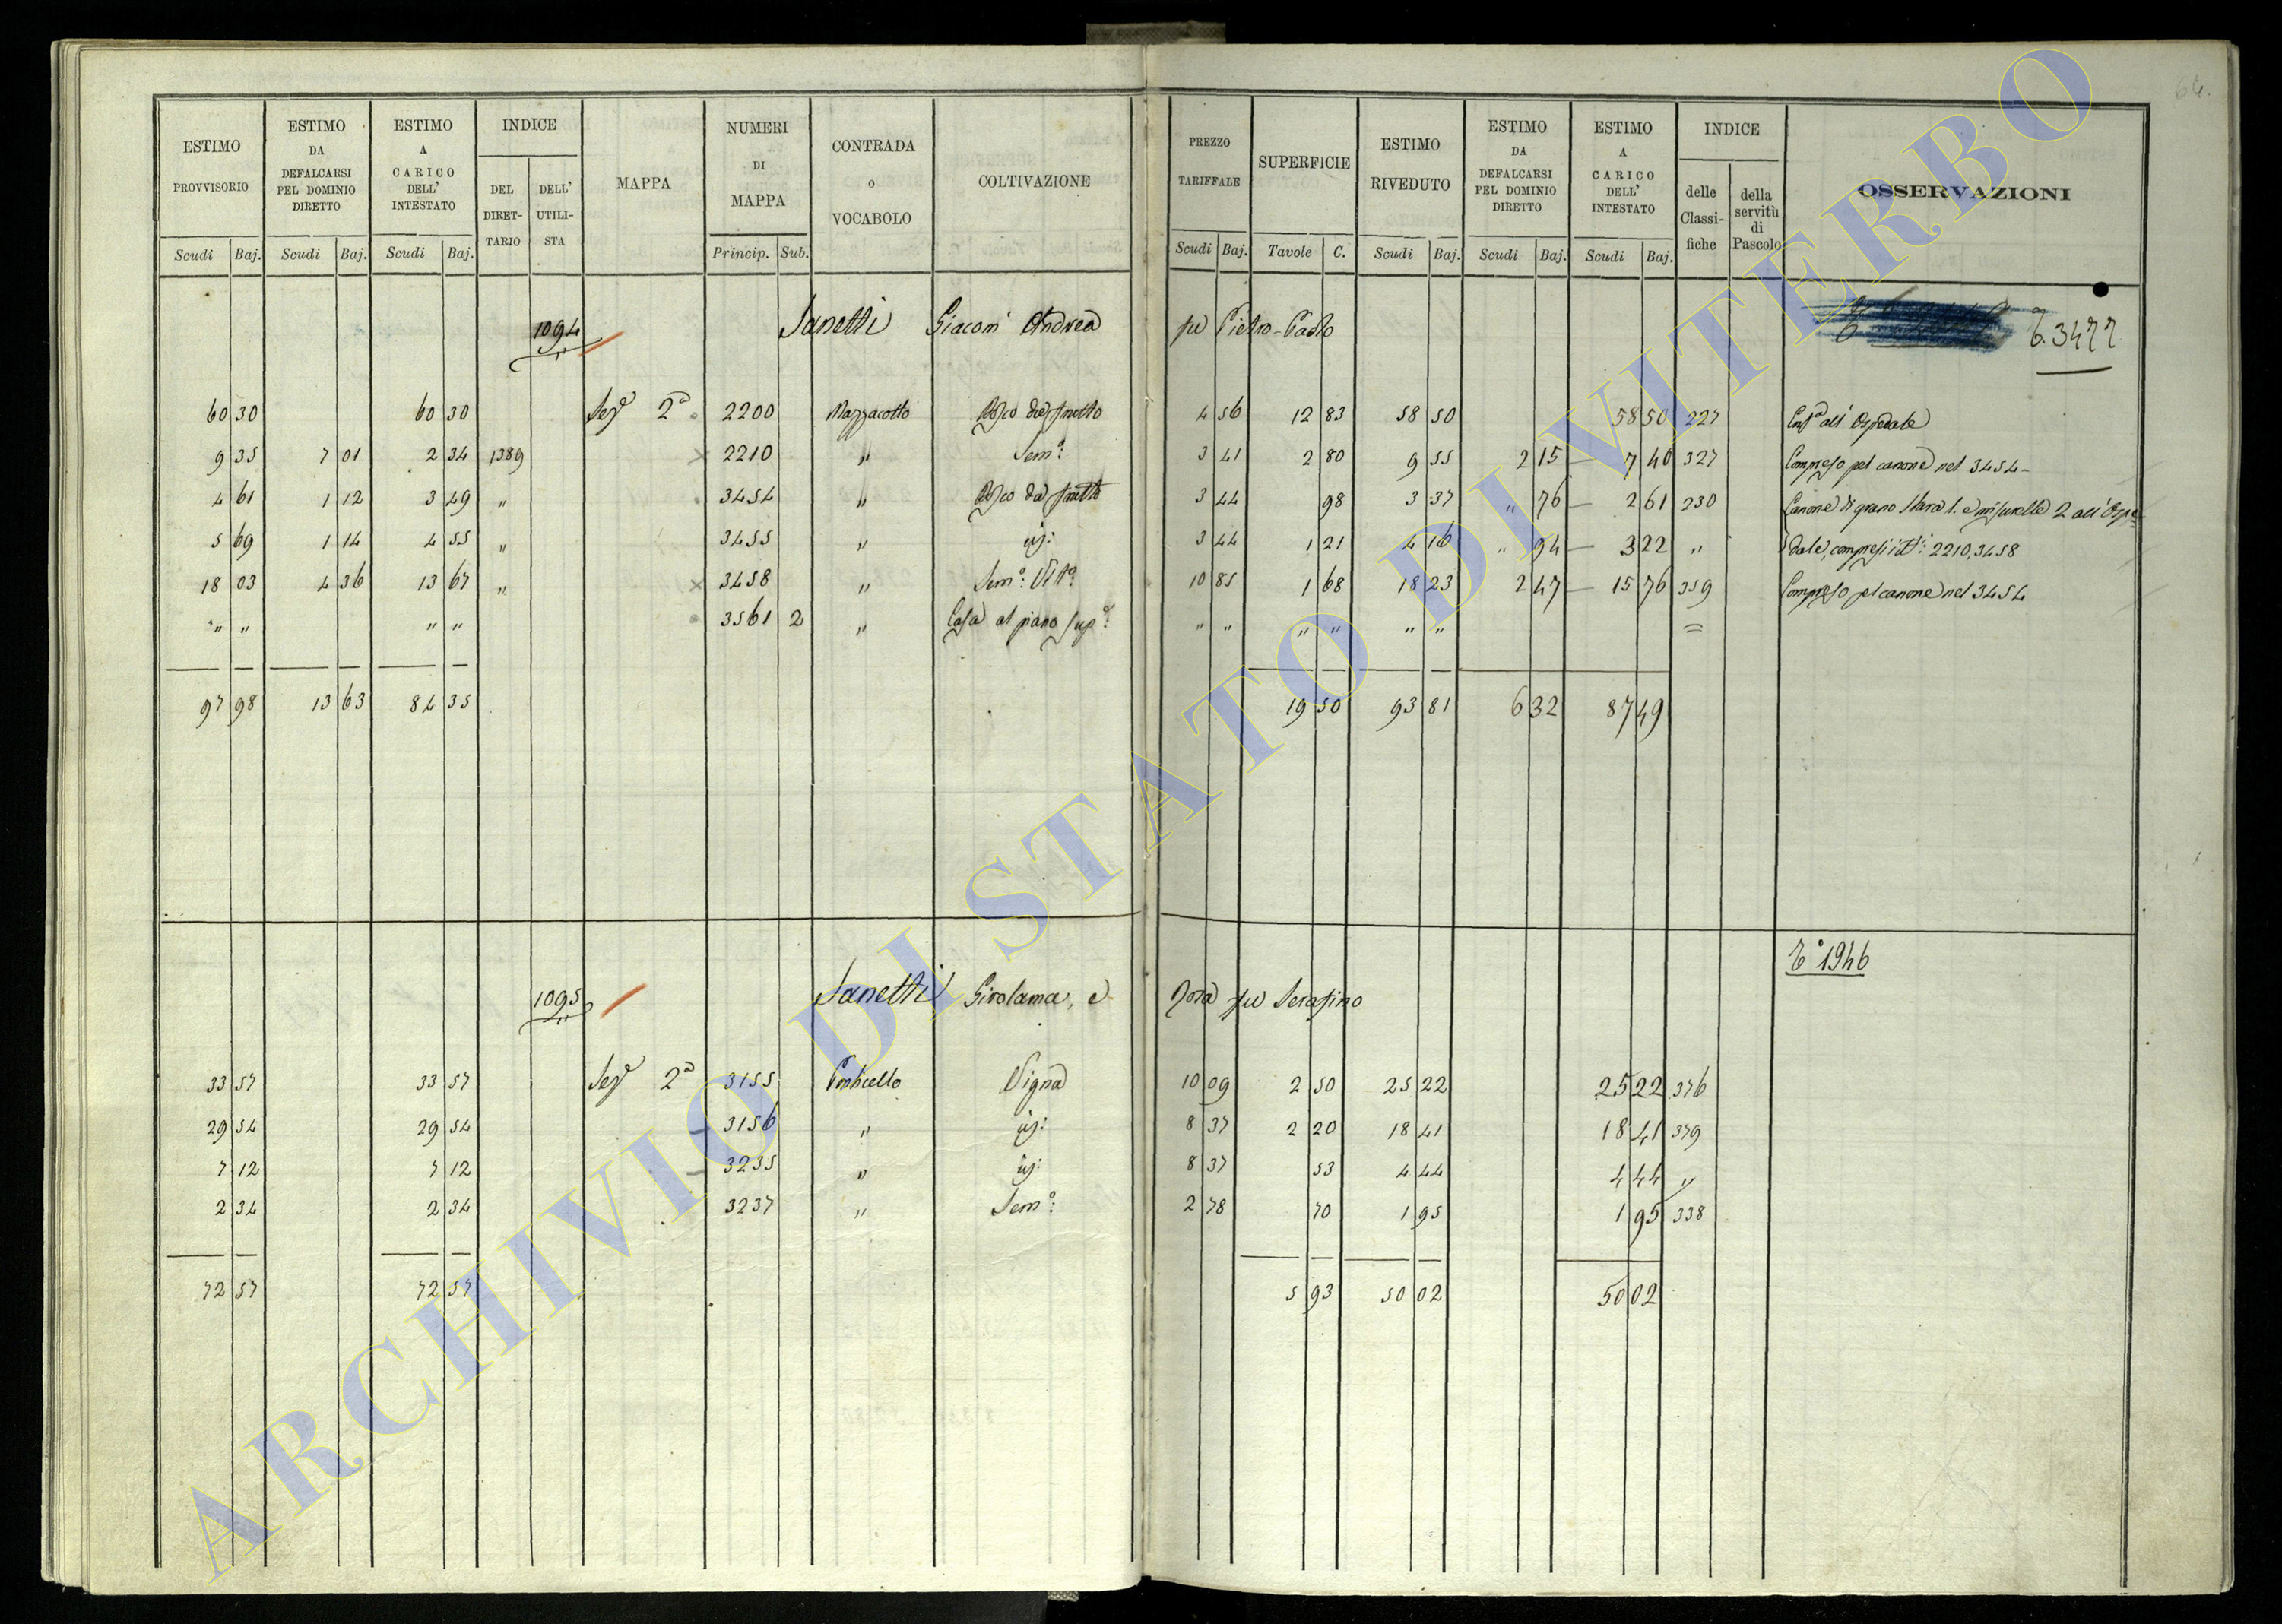 64.
ESTIMO PROVVISORIO | ESTIMO DA DEFALCARSI PEL DOMINIO DIRETTO | ESTIMO A CARICO DELL' INTESTATO | INDICE DEL DIRET-TARIO | DELL' UTILI-STA | MAPPA | NUMERI DI MAPPA | CONTRADA O VOCABOLO | COLTIVAZIONE | PREZZO TARIFFALE | SUPERFICIE | ESTIMO RIVEDUTO | ESTIMO DA DEFALCARSI PEL DOMINIO DIRETTO | ESTIMO A CARICO DELL' INTESTATO | INDICE delle Classi-fiche | della servitù di Pascolo | OSSERVAZIONI
Scudi | Baj. | Scudi | Baj. | Scudi | Baj. | Princip. | Sub. | Scudi | Baj. | Tavole | C. | Scudi | Baj. | Scudi | Baj. | Scudi | Baj.
1094 Sanetti Giacom' Andrea fu Pietro-Paolo T. 3477
60 30 | 60 30 | Sez.e 2a | 2200 | Mazzacotto | Bosco da frutto | 4 56 | 12 83 | 58 50 | 58 50 | 227 | all' Ospedale
9 35 | 7 01 | 2 34 | 1389 | 2210 | " | Sem.o | 3 41 | 2 80 | 9 55 | 2 15 | 7 40 | 327 | Compreso pel canone nel 3454
4 61 | 1 12 | 3 49 | " | 3454 | " | Bosco da frutto | 3 44 | 98 | 3 37 | " 76 | 2 61 | 230 | Canone di grano Stara 1. e misurelle 2 all' Ospe-
5 69 | 1 14 | 4 55 | " | 3455 | " | id: | 3 44 | 1 21 | 4 16 | " 94 | 3 22 | " | dale, compresi i N.i 2210, 3458
18 03 | 4 36 | 13 67 | " | 3458 | " | Sem.o Vit.o | 10 85 | 1 68 | 18 23 | 2 47 | 15 76 | 359 | Compreso pel canone nel 3454
" " | " " | 3561 2 | " | Casa al piano sup.e | " " | " " | " " | =
97 98 | 13 63 | 84 35 | 19 50 | 93 81 | 6 32 | 87 49
T.o 1946
1095 Sanetti Girolama, e Dora fu Serafino
33 57 | 33 57 | Sez.e 2a | 3155 | Ponticello | Vigna | 10 09 | 2 50 | 25 22 | 25 22 | 376
29 54 | 29 54 | 3156 | " | id: | 8 37 | 2 20 | 18 41 | 18 41 | 379
7 12 | 7 12 | 3235 | " | id: | 8 37 | 53 | 4 44 | 4 44 | "
2 34 | 2 34 | 3237 | " | Sem.o | 2 78 | 70 | 1 95 | 1 95 | 338
72 57 | 72 57 | 5 93 | 50 02 | 50 02
ARCHIVIO DI STATO DI VITERBO